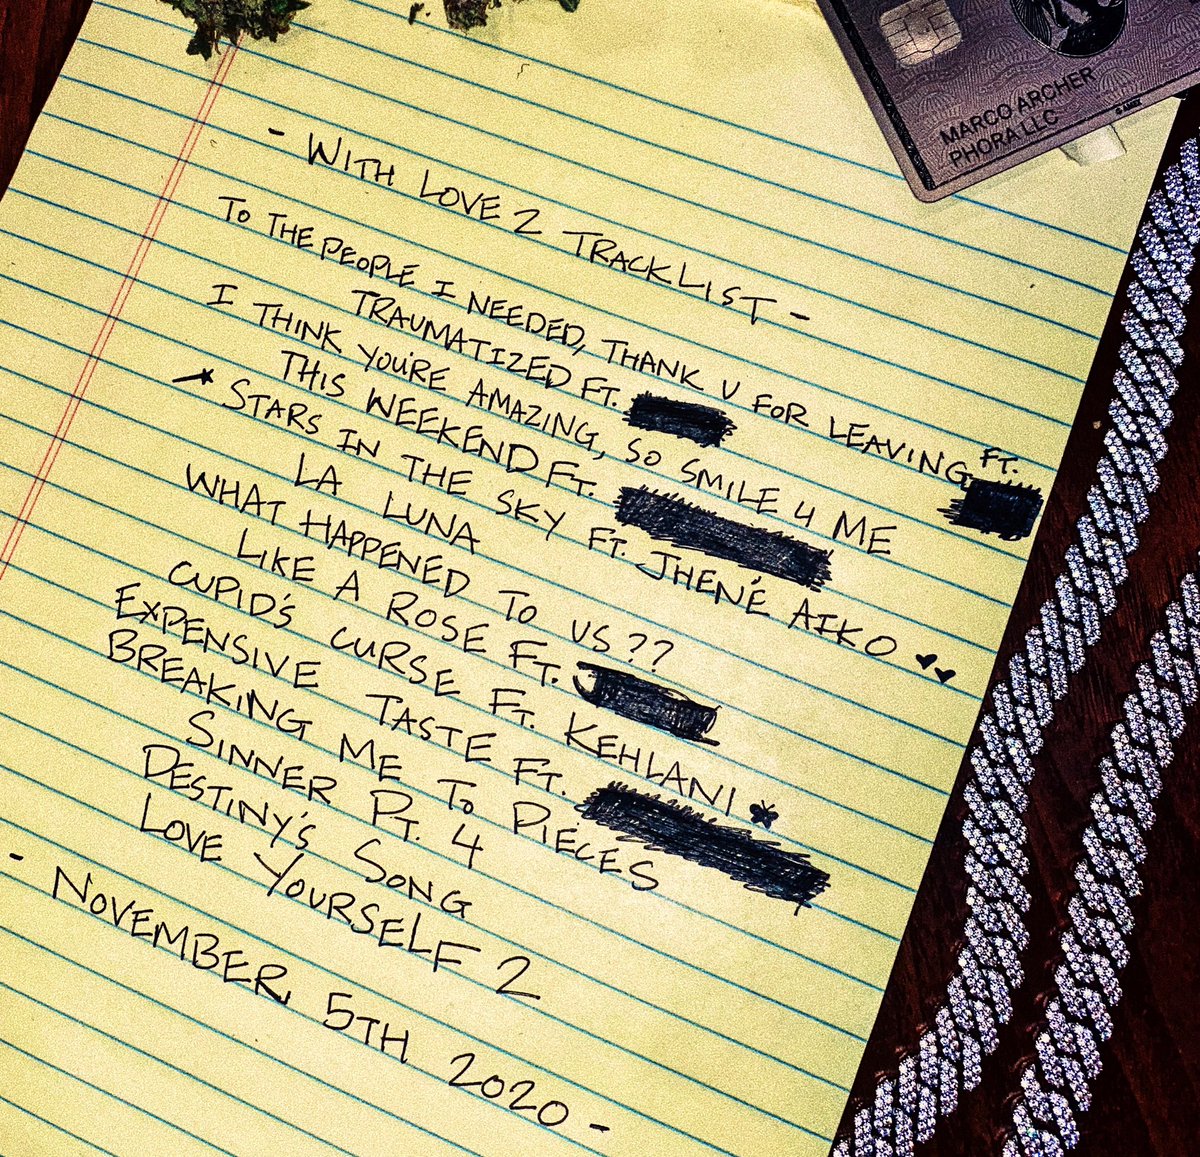 MARCO ARCHER
PHORA LLC
- WITH LOVE 2 TRACKLIST -
TO THE PEOPLE I NEEDED, THANK U FOR LEAVING FT.
TRAUMATIZED FT.
I THINK YOU'RE AMAZING, SO SMILE 4 ME
THIS WEEKEND FT.
STARS IN THE SKY FT. JHENÉ AIKO
LA LUNA
WHAT HAPPENED TO US??
LIKE A ROSE FT.
CUPID'S CURSE FT. KEHLANI
EXPENSIVE TASTE FT.
BREAKING ME TO PIECES
SINNER PT. 4
DESTINY'S SONG
LOVE YOURSELF 2
- NOVEMBER, 5TH 2020 -